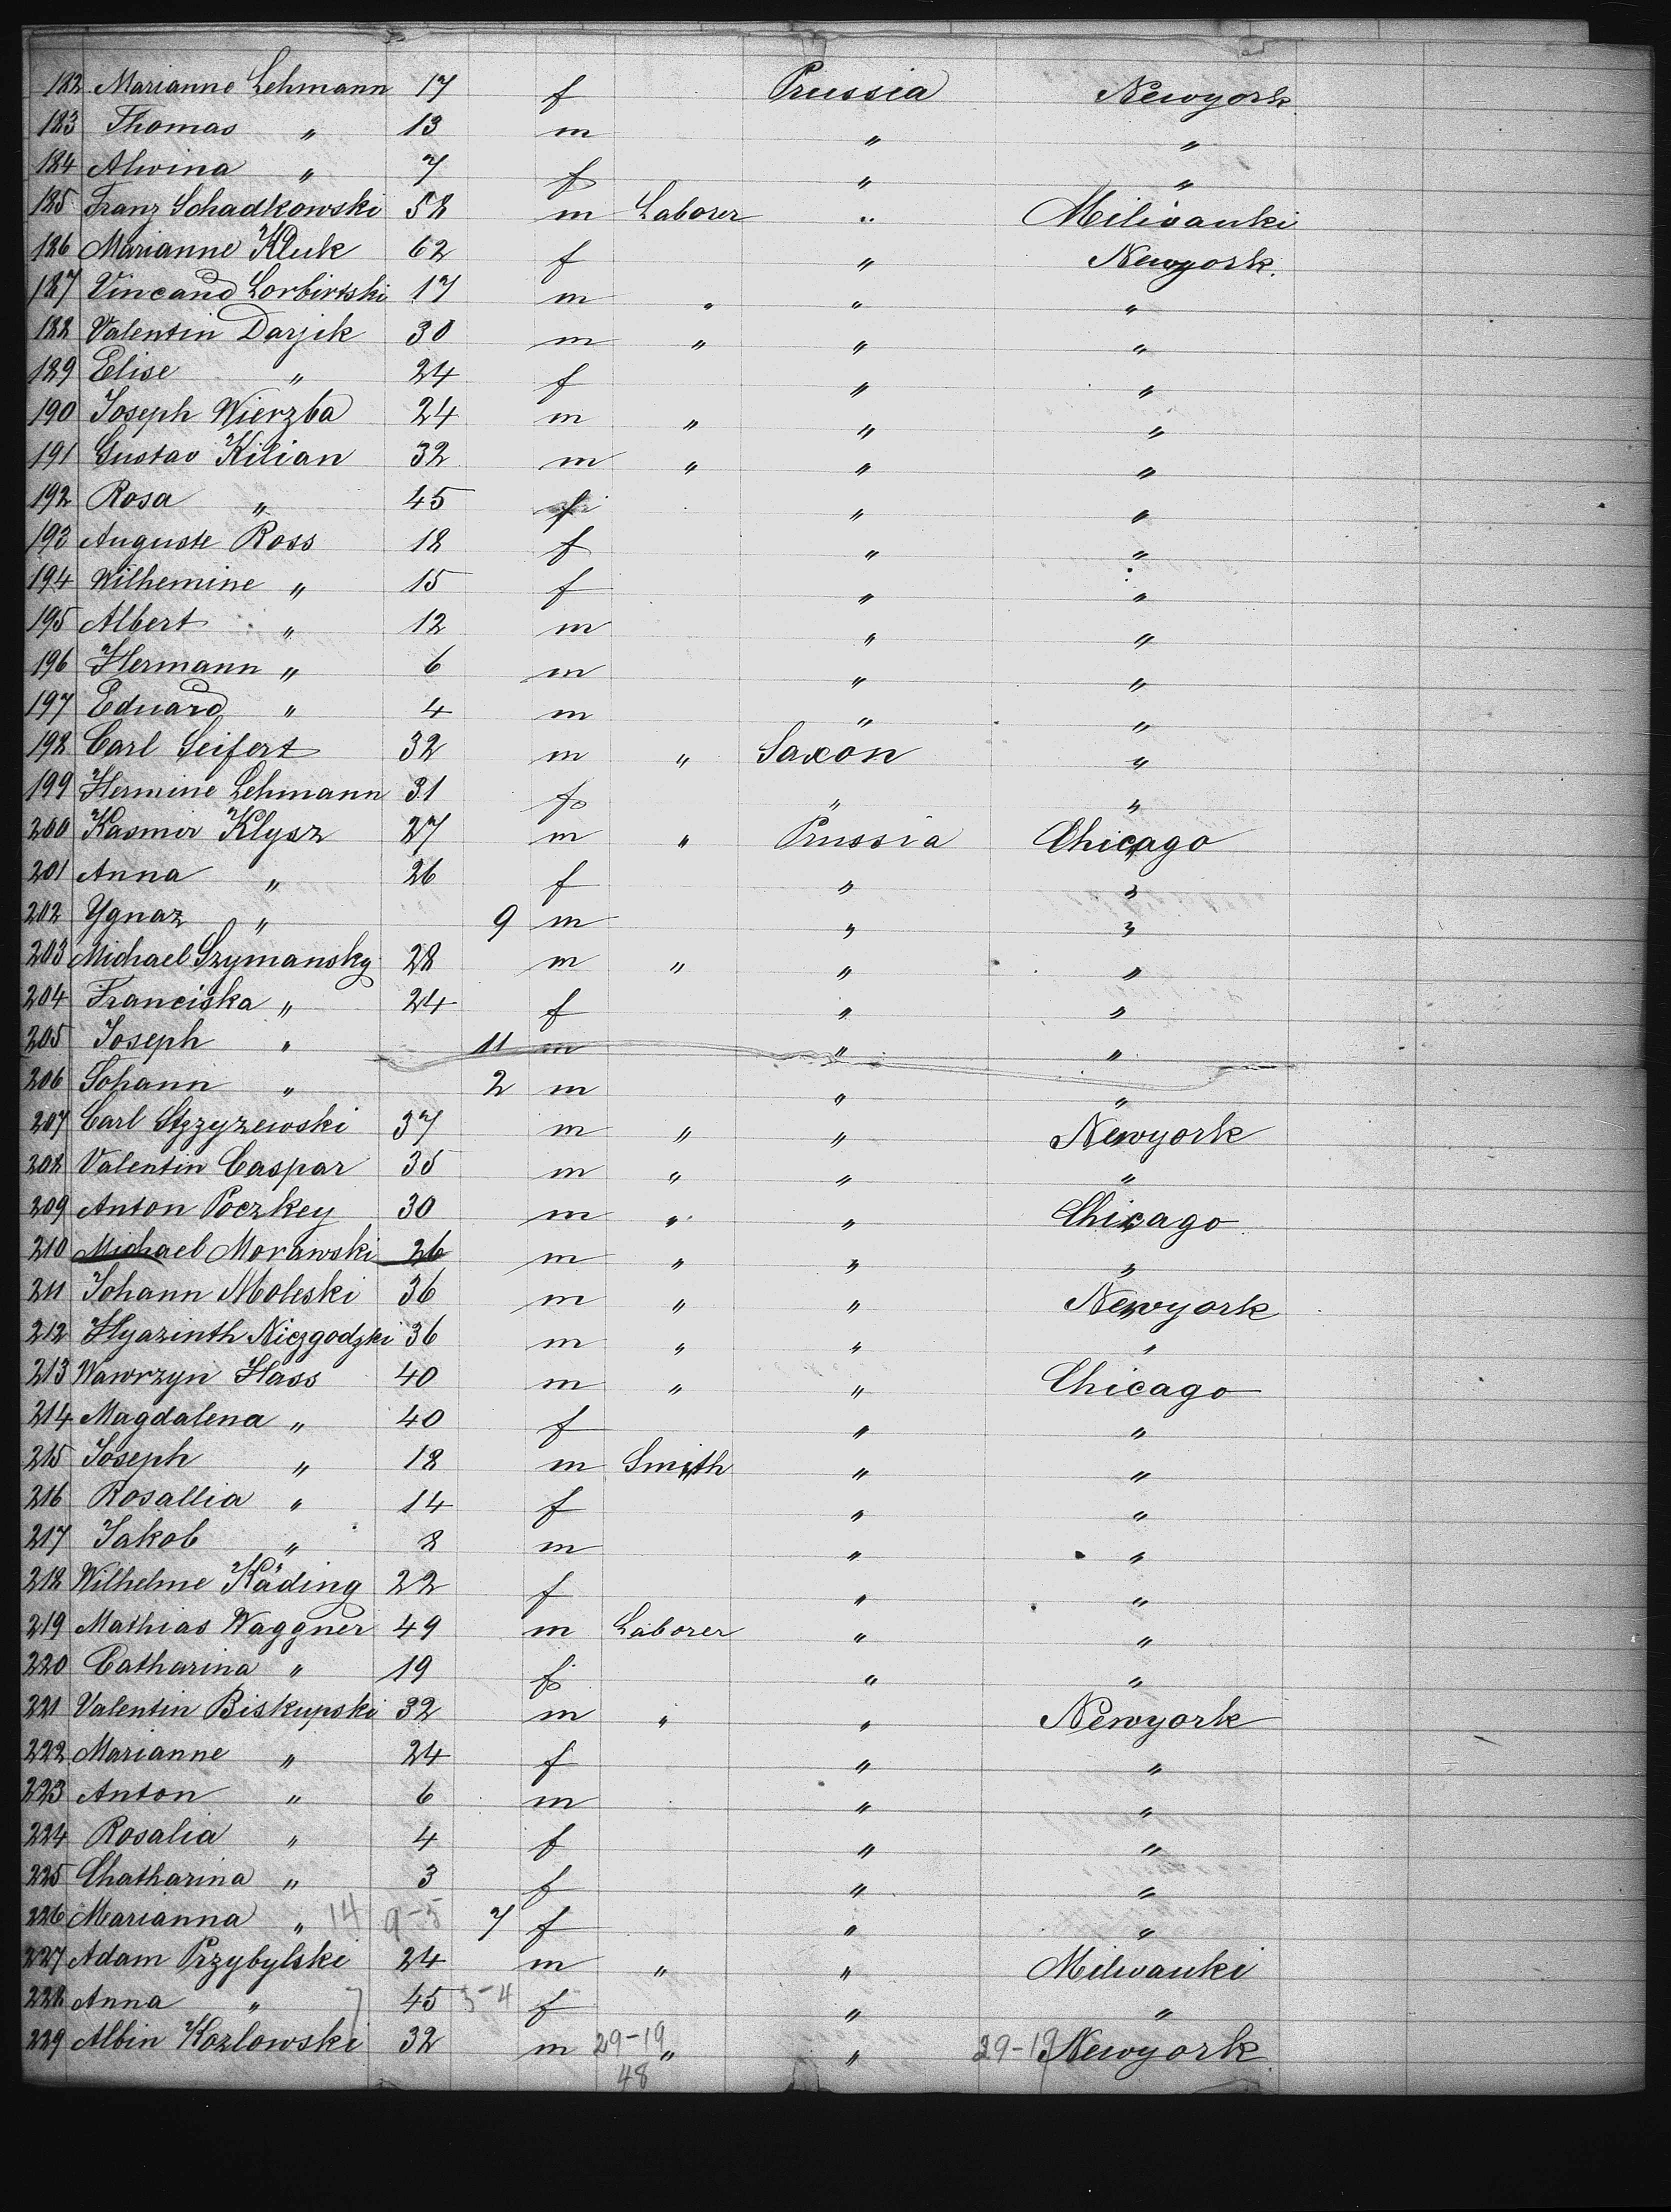 182 Marianne Lehmann 17 f Prussia Newyork
183 Thomas " 13 m " "
184 Alwina " 7 f " "
185 Franz Schadkowski 58 m Laborer " Miliwauki
186 Marianne Kluk 62 f " Newyork.
187 Vincand 17 m " " "
188 Valentin Darjik 30 m " " "
189 Elise " 24 f " "
190 Joseph Wierzba 24 m " " "
191 Gustav Kilian 32 m " " "
192 Rosa " 45 f " "
193 Auguste Ross 18 f " "
194 Wilhemine " 15 f " "
195 Albert " 12 m " "
196 Hermann " 6 m " "
197 Eduard " 4 m " "
198 Carl Seifert 32 m " Saxon "
199 Hermine Lehmann 31 f " "
200 Kasmir Klysz 27 m " Prussia Chicago
201 Anna " 26 f " "
202 Ygnaz " 9 m " "
203 Michael Szymansky 28 m " " "
204 Franciska " 24 f " "
205 Joseph " 11 m " "
206 Johann " 2 m " "
207 Carl 37 m " " Newyork
208 Valentin Caspar 35 m " " "
209 Anton Poczkey 30 m " " Chicago
210 Michael Morawski 26 m " " "
211 Johann Moleski 36 m " " Newyork
212 Hyazinth Niezgodzki 36 m " " "
213 Wawrzyn Hass 40 m " " Chicago
214 Magdalena " 40 f " "
215 Joseph " 18 m Smith " "
216 Rosallia " 14 f " "
217 Jakob " 8 m " "
218 Wilhelme Käding 22 f " "
219 Mathias Waggner 49 m Laborer " "
220 Catharina " 19 f " "
221 Valentin Biskupski 32 m " " Newyork
222 Marianne " 24 f " "
223 Anton " 6 m " "
224 Rosalia " 4 f " "
225 Chatharina " 3 f " "
226 Marianna " 14 9-5 7 f " "
227 Adam Przybylski 24 m " " Milwauki
228 Anna " 7 45 3-4 f " "
229 Albin Kozlowski 32 m 29-19 " " 29-19 Newyork
48